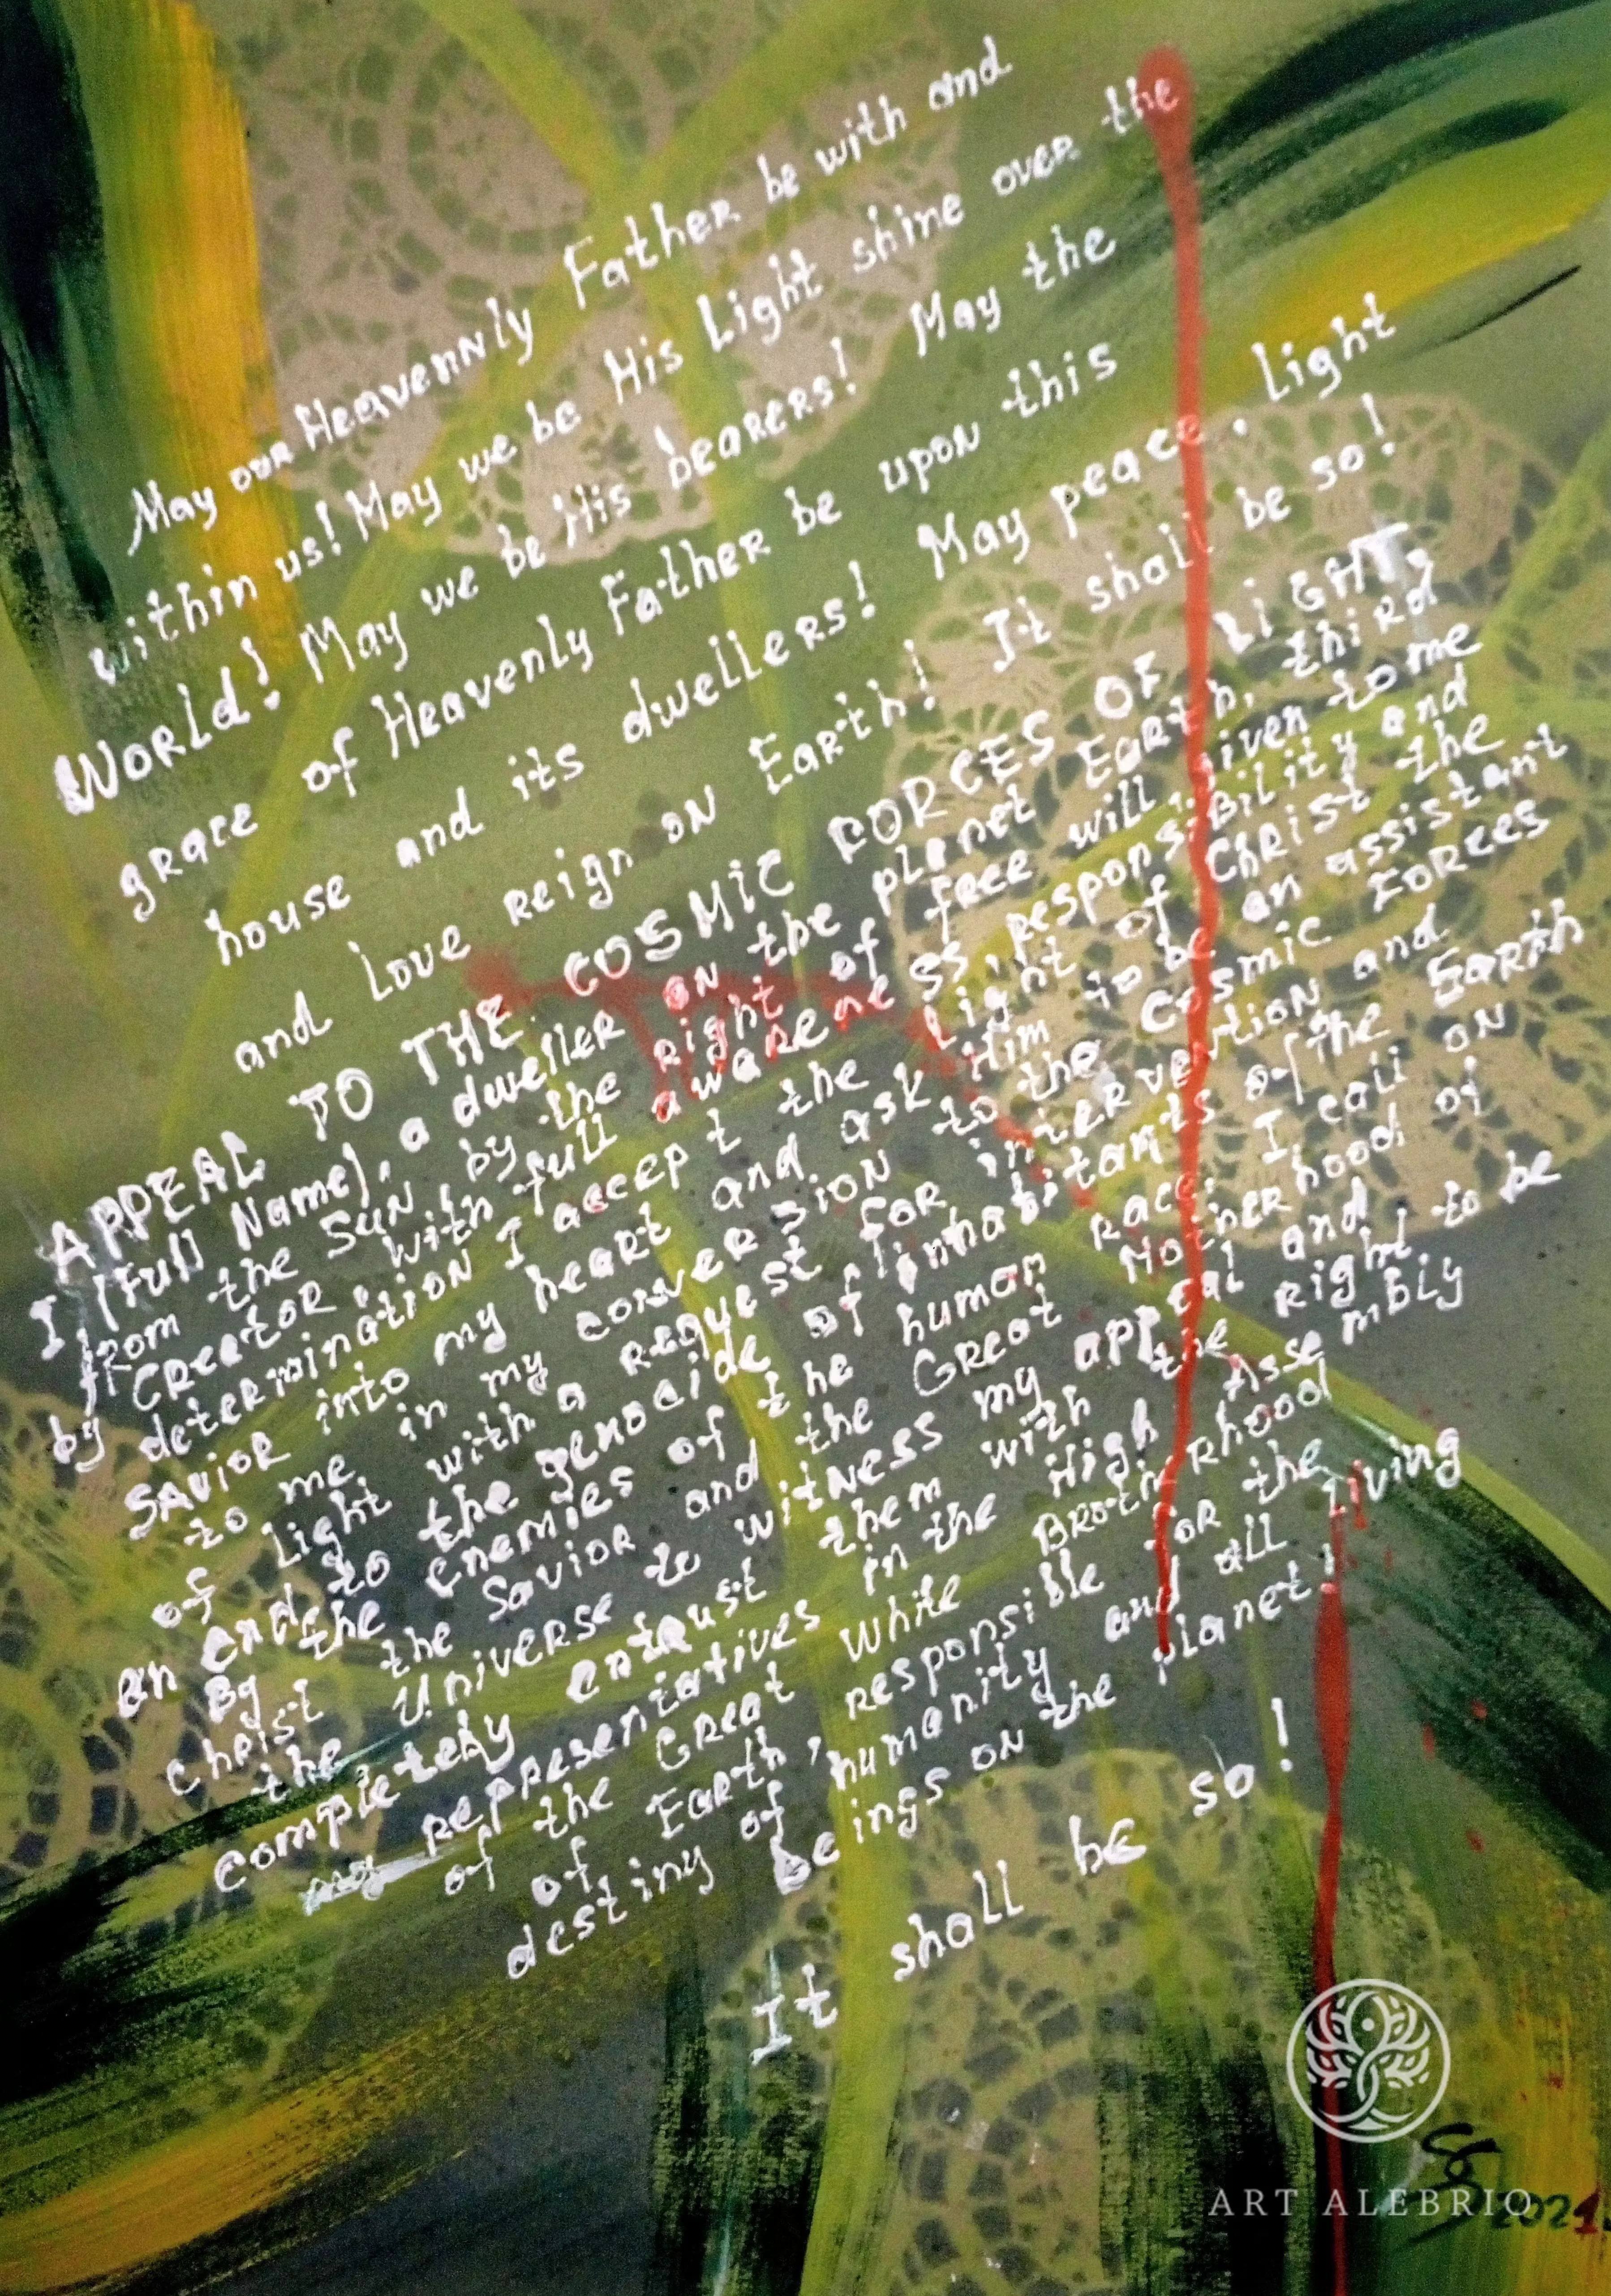 May our Heavennly Father be with and
within us! May we be His Light shine over the
World! May we be His bearers! May the
grace of Heavenly Father be upon this
house and its dwellers! May peace, Light
and Love reign on Earth! It shall be so!
APPEAL TO THE COSMIC FORCES OF LIGHT,
I (full Name), a dweller on the planet Earth, third
from the Sun, by the right of free will, given to me
by Creator, with full awareness, responsibility and
determination I accept the Light of Christ the
Savior into my heart and ask Him to be an assistant
to me in my conversion to the Cosmic Forces
of Light with a request for intervention and
an end to the genocide of inhabitants of the Earth
By the enemies of the human race. I call on
Christ the Savior and the Great Motherhood of
the Universe to witness my appeal and
completely entrust them with the right to be
my representatives in the High Assembly
of the Great White Brotherhood
of Earth, responsible for the
destiny of humanity and all living
beings on the planet!
It shall be so!
ART ALEBRIO
2021